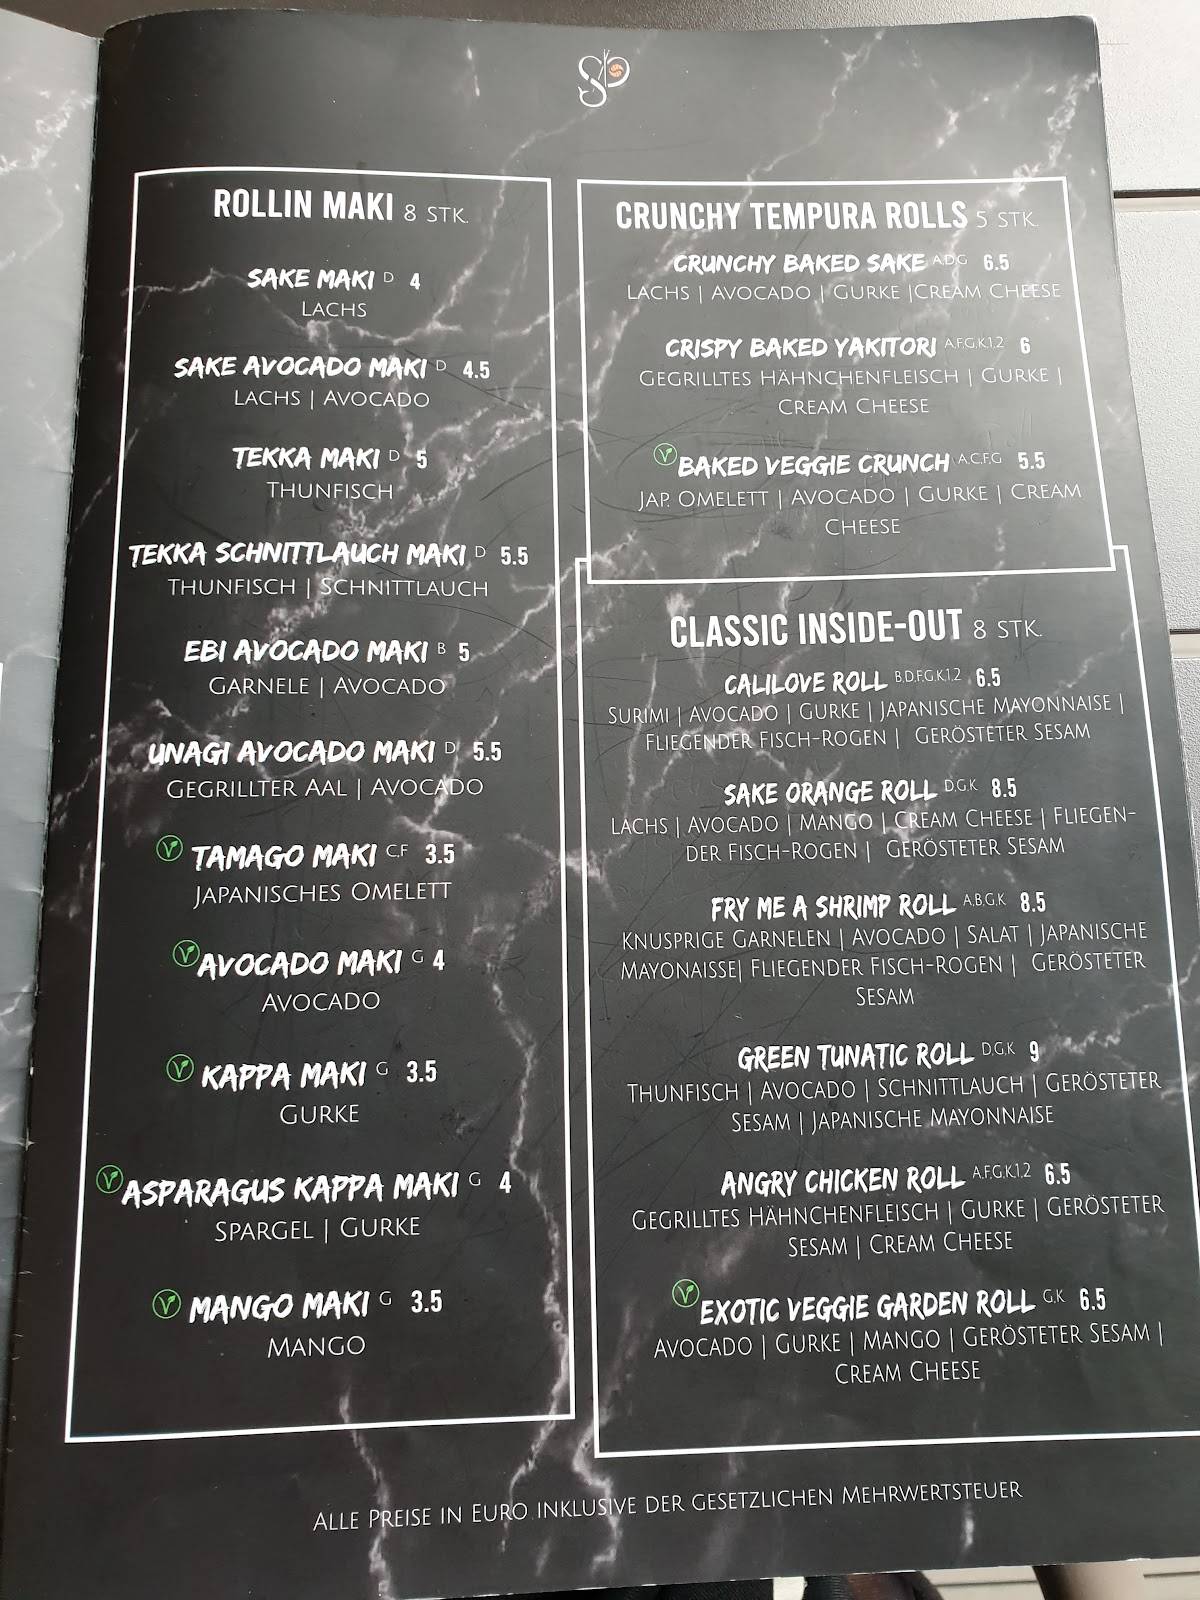 ROLLIN MAKI 8 STK.
SAKE MAKI D 4
LACHS
SAKE AVOCADO MAKI D 4.5
LACHS | AVOCADO
TEKKA MAKI D 5
THUNFISCH
TEKKA SCHNITTLAUCH MAKI D 5.5
THUNFISCH | SCHNITTLAUCH
EBI AVOCADO MAKI B 5
GARNELE | AVOCADO
UNAGI AVOCADO MAKI D 5.5
GEGRILLTER AAL | AVOCADO
V TAMAGO MAKI C,F 3.5
JAPANISCHES OMELETT
V AVOCADO MAKI G 4
AVOCADO
V KAPPA MAKI G 3.5
GURKE
V ASPARAGUS KAPPA MAKI G 4
SPARGEL | GURKE
V MANGO MAKI G 3.5
MANGO
CRUNCHY TEMPURA ROLLS 5 STK.
CRUNCHY BAKED SAKE A,D,G 6.5
LACHS | AVOCADO | GURKE |CREAM CHEESE
CRISPY BAKED YAKITORI A,F,G,K,1,2 6
GEGRILLTES HÄHNCHENFLEISCH | GURKE |
CREAM CHEESE
V BAKED VEGGIE CRUNCH A,C,F,G 5.5
JAP. OMELETT | AVOCADO | GURKE | CREAM
CHEESE
CLASSIC INSIDE-OUT 8 STK.
CALILOVE ROLL B,D,F,G,K,1,2 6.5
SURIMI | AVOCADO | GURKE | JAPANISCHE MAYONNAISE |
FLIEGENDER FISCH-ROGEN | GERÖSTETER SESAM
SAKE ORANGE ROLL D,G,K 8.5
LACHS | AVOCADO | MANGO | CREAM CHEESE | FLIEGEN-
DER FISCH-ROGEN | GERÖSTETER SESAM
FRY ME A SHRIMP ROLL A,B,G,K 8.5
KNUSPRIGE GARNELEN | AVOCADO | SALAT | JAPANISCHE
MAYONAISSE| FLIEGENDER FISCH-ROGEN | GERÖSTETER
SESAM
GREEN TUNATIC ROLL D,G,K 9
THUNFISCH | AVOCADO | SCHNITTLAUCH | GERÖSTETER
SESAM | JAPANISCHE MAYONNAISE
ANGRY CHICKEN ROLL A,F,G,K,1,2 6.5
GEGRILLTES HÄHNCHENFLEISCH | GURKE | GERÖSTETER
SESAM | CREAM CHEESE
V EXOTIC VEGGIE GARDEN ROLL G,K 6.5
AVOCADO | GURKE | MANGO | GERÖSTETER SESAM |
CREAM CHEESE
ALLE PREISE IN EURO INKLUSIVE DER GESETZLICHEN MEHRWERTSTEUER